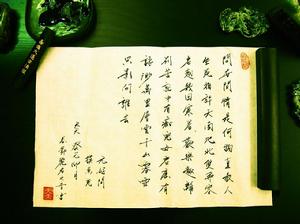 問世間情是何物直教人
生死相許天南地北雙飛客
老翅幾回寒暑歡樂趣離
別苦就中更有癡兒女君應有
語渺萬里層雲千山暮雪
只影向誰去
元好問
摸魚兒